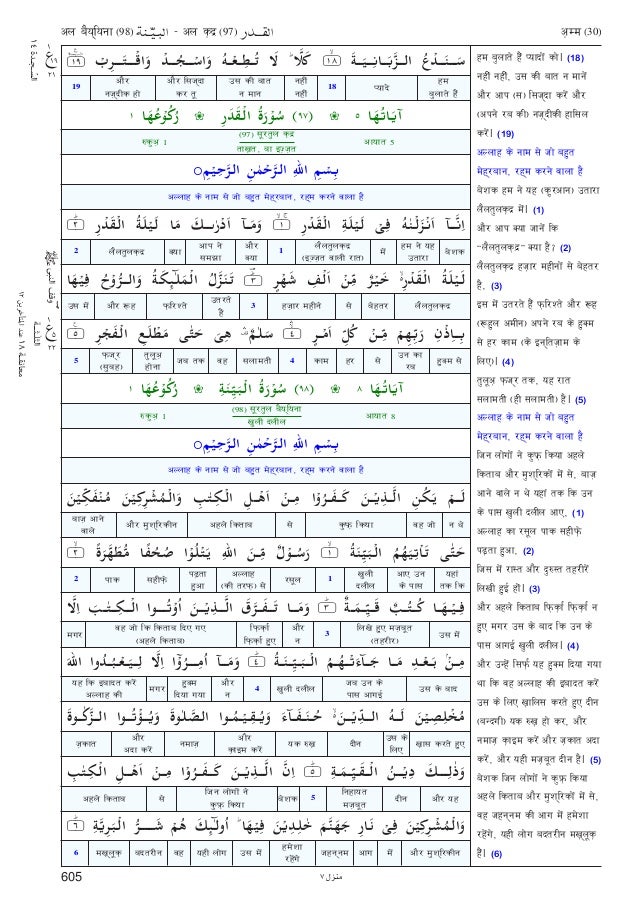 अल बैय्यिना (98) البيّنة - अल क़द्र (97) القدر
अ़म्म (30)
سَنَدْعُ الزَّبَانِيَةَ ۙ ١٨ كَلَّا ۗ لَا تُطِعْهُ وَاسْجُدْ وَاقْتَرِبْ ١٩
19 और नज़्दीक हो और सिज्दा कर तू उस की बात न मान नहीं नहीं 18 प्यादे हम बुलाते हैं
اٰيَاتُهَا ٥ ❀ (٩٧) سُوْرَةُ الْقَدْرِ ❀ رُكُوْعُهَا ١
रुकुअ़ 1 (97) सूरतुल क़द्र आयात 5
ताख़त, वा इज़्ज़त
بِسْمِ اللهِ الرَّحْمٰنِ الرَّحِيْمِ
अल्लाह के नाम से जो बहुत मेह्रबान, रह्म करने वाला है
اِنَّآ اَنْزَلْنٰهُ فِيْ لَيْلَةِ الْقَدْرِ ١ وَمَآ اَدْرٰىكَ مَا لَيْلَةُ الْقَدْرِ ٢
2 लैलतुलक़द्र क्या आप ने समझा और क्या 1 लैलतुलक़द्र (इज़्ज़त वाली रात) में हम ने यह उतारा बेशक
لَيْلَةُ الْقَدْرِ خَيْرٌ مِّنْ اَلْفِ شَهْرٍ ٣ تَنَزَّلُ الْمَلٰٓئِكَةُ وَالرُّوْحُ فِيْهَا
उस में और रूह फ़रिश्ते उतरते हैं 3 हज़ार महीने से बेहतर लैलतुलक़द्र
بِاِذْنِ رَبِّهِمْ مِّنْ كُلِّ اَمْرٍ ٤ سَلٰمٌ هِيَ حَتّٰى مَطْلَعِ الْفَجْرِ ٥
5 फ़ज्र (सुबह) तुलूअ़ होना जब तक वह सलामती 4 काम हर से उन का रब हुक्म से
اٰيَاتُهَا ٨ ❀ (٩٨) سُوْرَةُ الْبَيِّنَةِ ❀ رُكُوْعُهَا ١
रुकुअ़ 1 (98) सूरतुल बैय्यिना आयात 8
खुली दलील
بِسْمِ اللهِ الرَّحْمٰنِ الرَّحِيْمِ
अल्लाह के नाम से जो बहुत मेह्रबान, रह्म करने वाला है
لَمْ يَكُنِ الَّذِيْنَ كَفَرُوْا مِنْ اَهْلِ الْكِتٰبِ وَالْمُشْرِكِيْنَ مُنْفَكِّيْنَ
बाज़ आने वाले और मुश्रिकीन अहले किताब से कुफ़्र किया वह जो न थे
حَتّٰى تَاْتِيَهُمُ الْبَيِّنَةُ ١ رَسُوْلٌ مِّنَ اللهِ يَتْلُوْا صُحُفًا مُّطَهَّرَةً ٢
2 पाक सहीफ़े पढ़ता हुआ अल्लाह (की तरफ़) से रसूल 1 खुली दलील आए उन के पास यहां तक कि
فِيْهَا كُتُبٌ قَيِّمَةٌ ٣ وَمَا تَفَرَّقَ الَّذِيْنَ اُوْتُوا الْكِتٰبَ اِلَّا
मगर वह जो कि किताब दिए गए (अहले किताब) फ़िर्क़ा फ़िर्क़ा हुए और न 3 लिखे हुए मज़बूत (तहरीर) उस में
مِنْۢ بَعْدِ مَا جَآءَتْهُمُ الْبَيِّنَةُ ٤ وَمَآ اُمِرُوْٓا اِلَّا لِيَعْبُدُوا اللهَ
यह कि इबादत करें अल्लाह की मगर हुक्म दिया गया और न 4 खुली दलील जब उन के पास आगई उस के बाद
مُخْلِصِيْنَ لَهُ الدِّيْنَ حُنَفَآءَ وَيُقِيْمُوا الصَّلٰوةَ وَيُؤْتُوا الزَّكٰوةَ
ज़कात और अदा करें नमाज़ और क़ाइम करें यक रुख़ दीन उस के लिए ख़ास करते हुए
وَذٰلِكَ دِيْنُ الْقَيِّمَةِ ٥ اِنَّ الَّذِيْنَ كَفَرُوْا مِنْ اَهْلِ الْكِتٰبِ
अहले किताब से जिन लोगों ने कुफ़्र किया बेशक 5 निहायत मज़बूत दीन और यह
وَالْمُشْرِكِيْنَ فِيْ نَارِ جَهَنَّمَ خٰلِدِيْنَ فِيْهَا اُولٰٓئِكَ هُمْ شَرُّ الْبَرِيَّةِ ٦
6 मख़्लूक़ बदतरीन वह यही लोग उस में हमेशा रहेंगे जहन्नम आग में और मुश्रिकीन
हम बुलाते हैं प्यादों को। (18)
नहीं नहीं, उस की बात न मानें
और आप (स) सिज्दा करें और
(अपने रब की) नज़्दीकी हासिल
करें। (19)
अल्लाह के नाम से जो बहुत
मेह्रबान, रह्म करने वाला है
बेशक हम ने यह (क़ुरआन) उतारा
लैलतुलक़द्र में। (1)
और आप क्या जानें कि
"लैलतुलक़द्र" क्या है? (2)
लैलतुलक़द्र हज़ार महीनों से बेहतर
है, (3)
इस में उतरते हैं फ़रिश्ते और रूह
(रूहुल अमीन) अपने रब के हुक्म
से हर काम (के इन्तिज़ाम के
लिए)। (4)
तुलूअ़ फ़ज्र तक, यह रात
सलामती (ही सलामती) है। (5)
अल्लाह के नाम से जो बहुत
मेह्रबान, रह्म करने वाला है
जिन लोगों ने कुफ़्र किया अहले
किताब और मुश्रिकों में से, बाज़
आने वाले न थे यहां तक कि उन
के पास खुली दलील आए, (1)
अल्लाह का रसूल पाक सहीफ़े
पढ़ता हुआ, (2)
जिस में रास्त और दुरुस्त तहरीरें
लिखी हुई हों। (3)
और अहले किताब फ़िर्क़ा फ़िर्क़ा न
हुए मगर उस के बाद कि उन के
पास आगई खुली दलील। (4)
और उन्हें सिर्फ़ यह हुक्म दिया गया
था कि वह अल्लाह की इबादत करें
उस के लिए ख़ालिस करते हुए दीन
(बन्दगी) यक रुख़ हो कर, और
नमाज़ क़ाइम करें और ज़कात अदा
करें, और यही मज़बूत दीन है। (5)
बेशक जिन लोगों ने कुफ़्र किया
अहले किताब और मुश्रिकों में से,
वह जहन्नम की आग में हमेशा
रहेंगे, यही लोग बदतरीन मख़्लूक़
हैं। (6)
605
منزل ٧